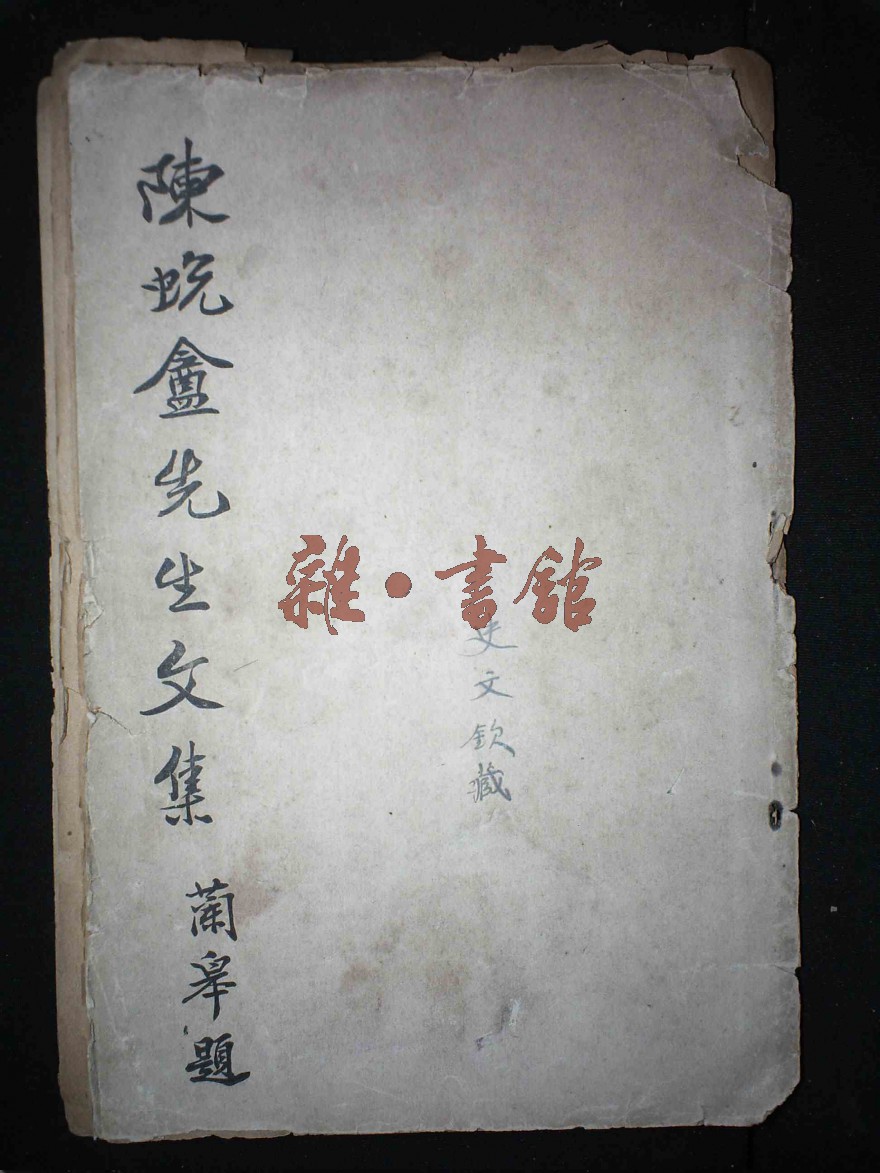 陳蛻盦先生文集
蘭皋題
雜·書館
文欽藏